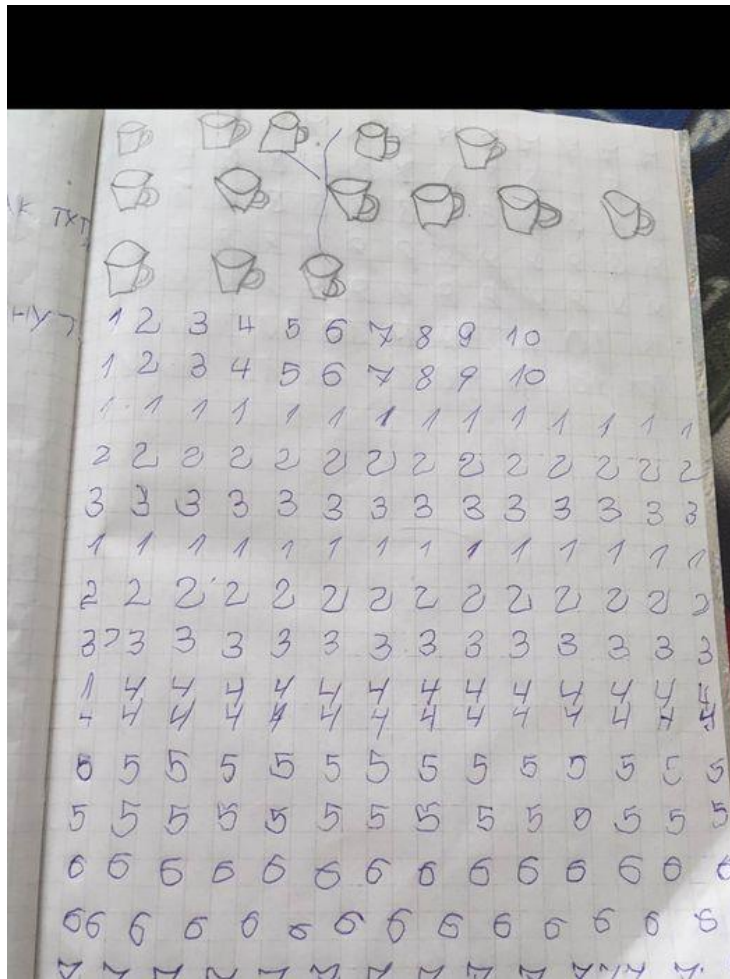 1 2 3 4 5 6 7 8 9 10
1 2 3 4 5 6 7 8 9 10
1 1 1 1 1 1 1 1 1 1 1 1 1 1
2 2 2 2 2 2 2 2 2 2 2 2 2 2
3 3 3 3 3 3 3 3 3 3 3 3 3 3
1 1 1 1 1 1 1 1 1 1 1 1 1 1
2 2 2 2 2 2 2 2 2 2 2 2 2 2
3 3 3 3 3 3 3 3 3 3 3 3 3 3
1 4 4 4 4 4 4 4 4 4 4 4 4 4
4 4 4 4 4 4 4 4 4 4 4 4 4 4
5 5 5 5 5 5 5 5 5 5 5 5 5 5
5 5 5 5 5 5 5 5 5 5 5 5 5 5
6 6 6 6 6 6 6 6 6 6 6 6 6 6
6 6 6 6 6 6 6 6 6 6 6 6 6 6
7 7 7 7 7 7 7 7 7 7 7 7 7 7